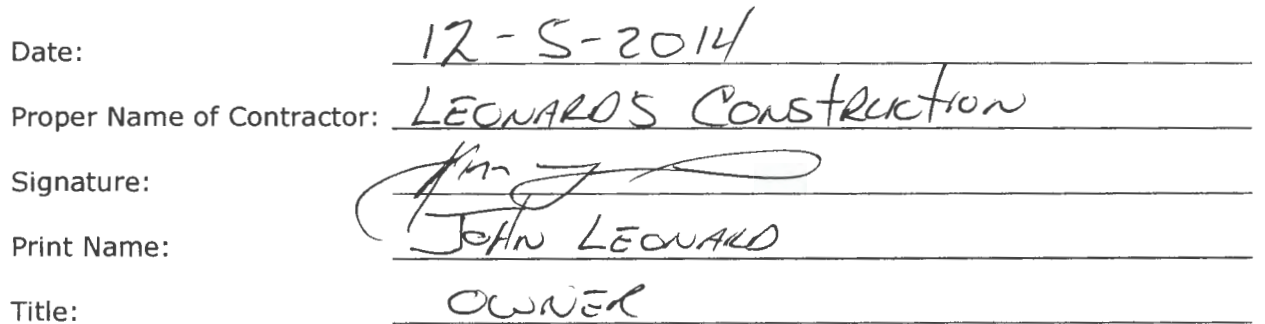 Date: 12-5-2014
Proper Name of Contractor: LEONARDS CONStRuctION
Signature:
Print Name: JOHN LEONARD
Title: OWNER